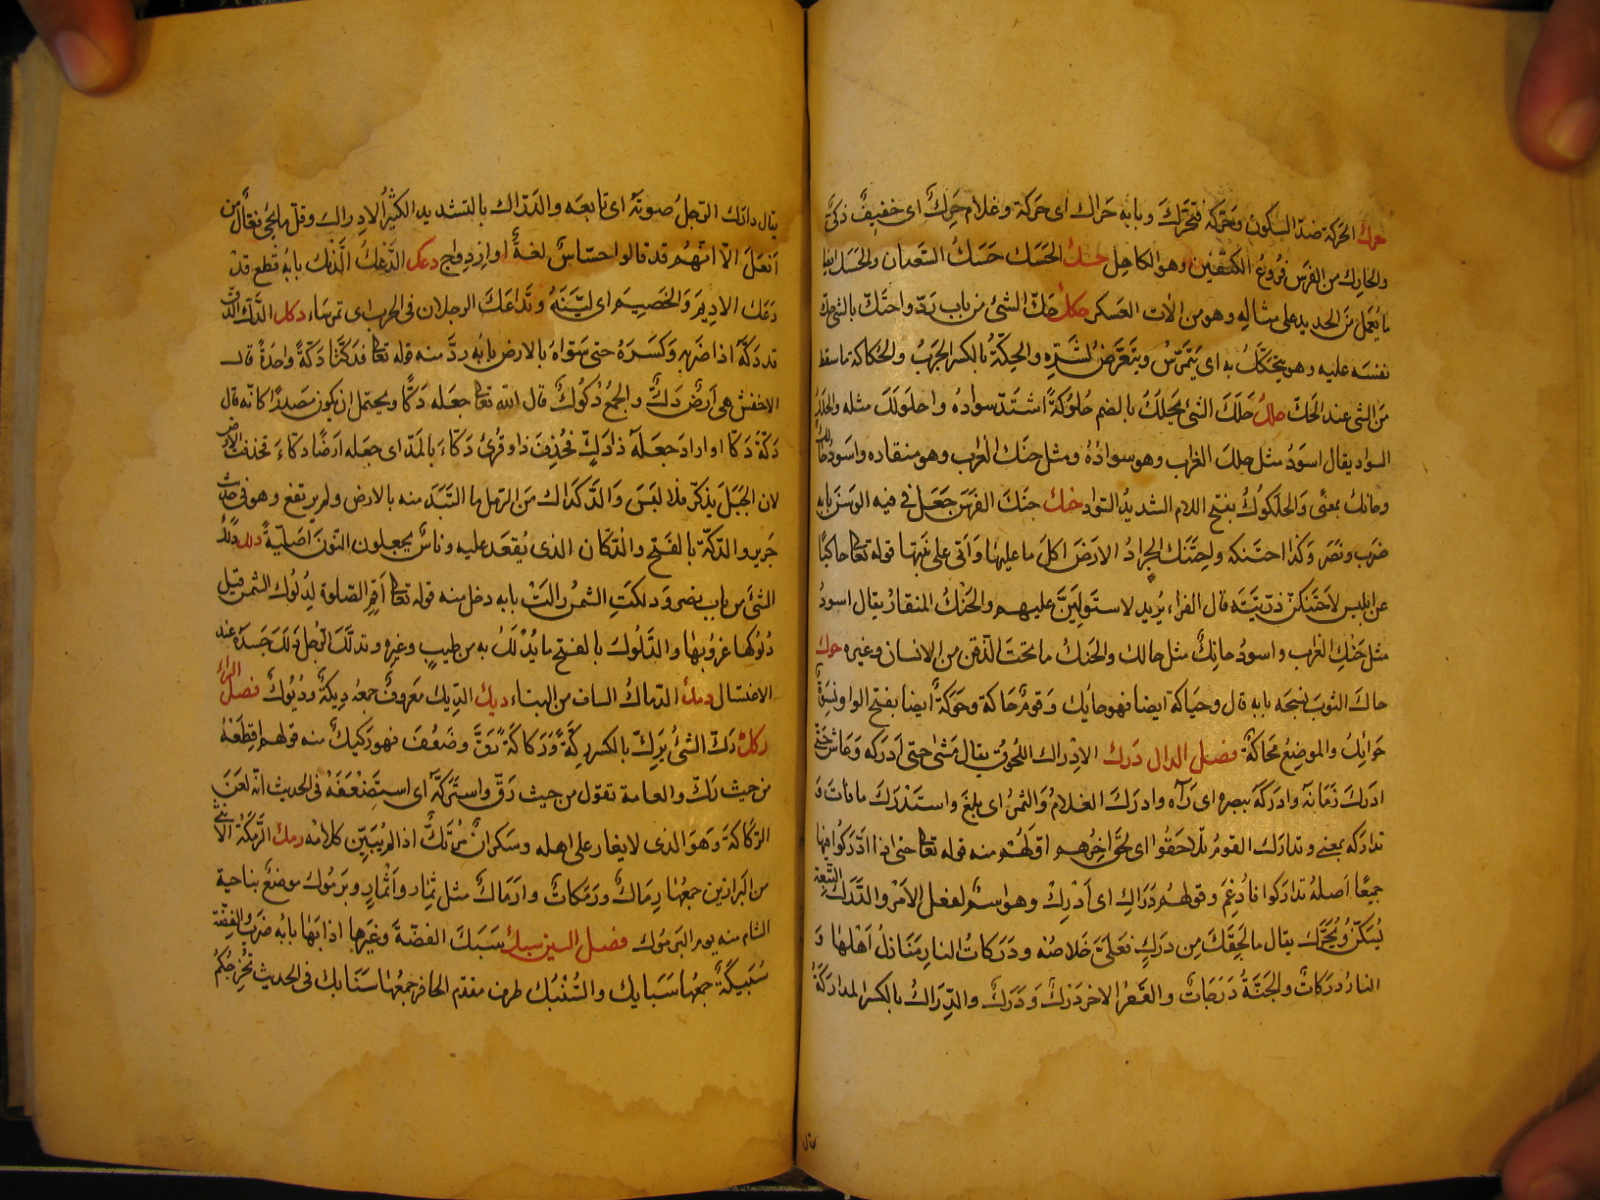 حرك الحركة ضد السكون وحركه فتحرك وما به حراك اى حركة وغلام حرك اى خفيف ذكى
والحارك من الفرس فروع الكتفين وهو الكاهل حسك الحسك حسك السعدان والحسك ايضا
ما يعمل من الحديد على مثاله وهو من الات العسكر حكك حك الشئ من باب رد واحتك بالشئ حك
نفسه عليه وهو يتحكك به اى يتمرس ويتعرض لشره والحكة بالكسر الجرب والحكاكة ما سقط
من الشئ عند الحك حلك حلك الشئ يحلك بالضم حلوكة اشتد سواده واحلولك مثله والحلك
السواد يقال اسود مثل حلك الغراب وهو سواده ومثل حنك الغراب وهو منقاره واسود حالك
وحانك بمعنى والحلكوك بفتح اللام الشديد السواد حنك حنك الفرس جعل فى فيه الرسن بابه
ضرب ونصر وكذا احتنكه واحتنك الجراد الارض اكل ما عليها واتى على نبتها قوله تعالى حاكيا
عن ابليس لاحتنكن ذريته قال الفراء يريد لاستولين عليهم والحنك المنقار يقال اسود
مثل حنك الغراب واسود حانك مثل حالك والحنك ما تحت الذقن من الانسان وغيره حوك
حاك الثوب نسجه بابه قال وحياكة ايضا فهو حايك وقوم حاكة وحوكة ايضا بفتح الواو ونسوة
حوايك والموضع محاكة فصل الدال درك الادراك اللحوق يقال مشى حتى ادركه وعاش حتى
ادرك زمانه وادركه ببصره اى رآه وادرك الغلام والثمر اى بلغ واستدرك ما فات و
تداركه بمعنى وتدارك القوم تلاحقوا اى لحق اخرهم اولهم منه قوله تعالى حتى اذا اداركوا فيها
جميعا اصله تداركوا فادغم وقولهم دراك اى ادرك وهو اسم لفعل الامر والدرك التبعة
يسكن ويحرك يقال ما لحقك من درك فعلى خلاصه ودركات النار منازل اهلها و
النار دركات والجنة درجات والقعر الاخر درك ودرك والدراك بالكسر المداركة
يقال
يقال دارك الرجل صوته اى تابعه والدراك بالتشديد الكثير الادراك وقل ما يجئ فعال من
افعل الا انهم قد قالوا حساس لغة او ازدواج دعك الدعك الدلك بابه قطع قد
دعك الاديم والخصيم اى لينه وتداعك الرجلان فى الحرب اى تمرسا دكك الدك الدق
قد دكه اذا ضربه وكسره حتى سواه بالارض بابه رد منه قوله تعالى فدكتا دكة واحدة قال
الاخفش هى ارض دك والجمع دكوك قال الله تعالى جعله دكا ويحتمل ان يكون مصدرا كانه قال
دكه دكا او اراد جعله ذا دك فحذف ذا وقرئ دكاء بالمد اى جعله ارضا دكاء فحذف الارض
لان الجبل مذكر فلا لبس والدكداك من الرمل ما التبد منه بالارض ولم يرتفع وهو فى حديث
جرير والدكة بالفتح والدكان الذى يقعد عليه وناس يجعلون النون اصلية دلك دلك
الشئ من باب نصر ودلكت الشمس زالت بابه دخل منه قوله تعالى اقم الصلوة لدلوك الشمس قيل
دلوكها غروبها والدلوك بالفتح ما يدلك به من طيب وغيره وتدلك الرجل دلك جسده عند
الاغتسال دمك الدماك الساف من البناء ديك الديك معروف جمعه ديكة وديوك فصل الراء
ركك رك الشئ يرك بالكسر ركة وركاكة رق وضعف فهو ركيك منه قولهم اقطعه
من حيث رك والعامة تقول من حيث رق واستركه اى استضعفه فى الحديث انه لعن
الركاكة وهو الذى لا يغار على اهله وسكران مرتك اذا لم يبين كلامه رمك الرمكة الانثى
من البراذين جمعها رماك ورمكات وارماك مثل ثمار واثمار ويرموك موضع بناحية
الشام منه يوم اليرموك فصل السين سبك سبك الفضة وغيرها اذابها بابه ضرب والفضة
سبيكة جمعها سبايك والسنبك طرف مقدم الحافر جمعها سنابك فى الحديث تخرجكم